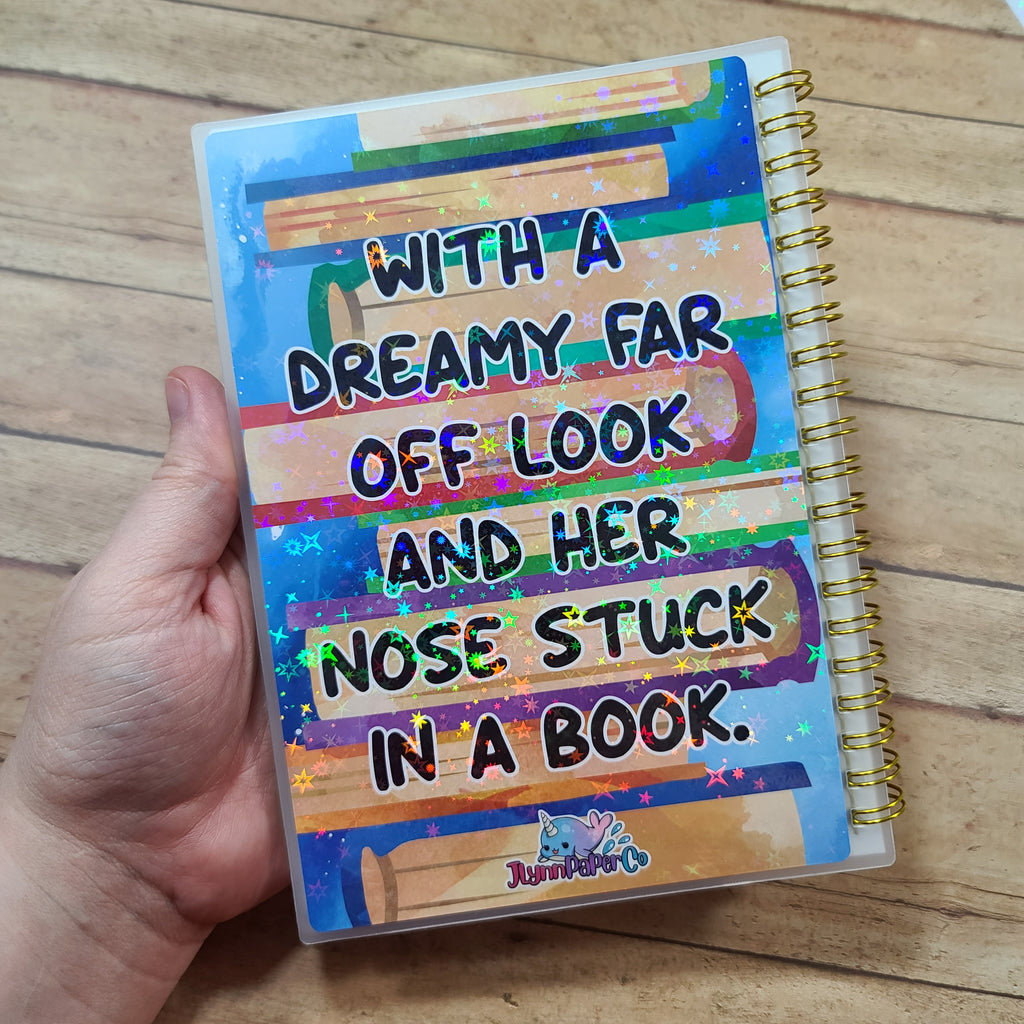 WITH A
DREAMY FAR
OFF LOOK
AND HER
NOSE STUCK
IN A BOOK.
JLynnPaperCo